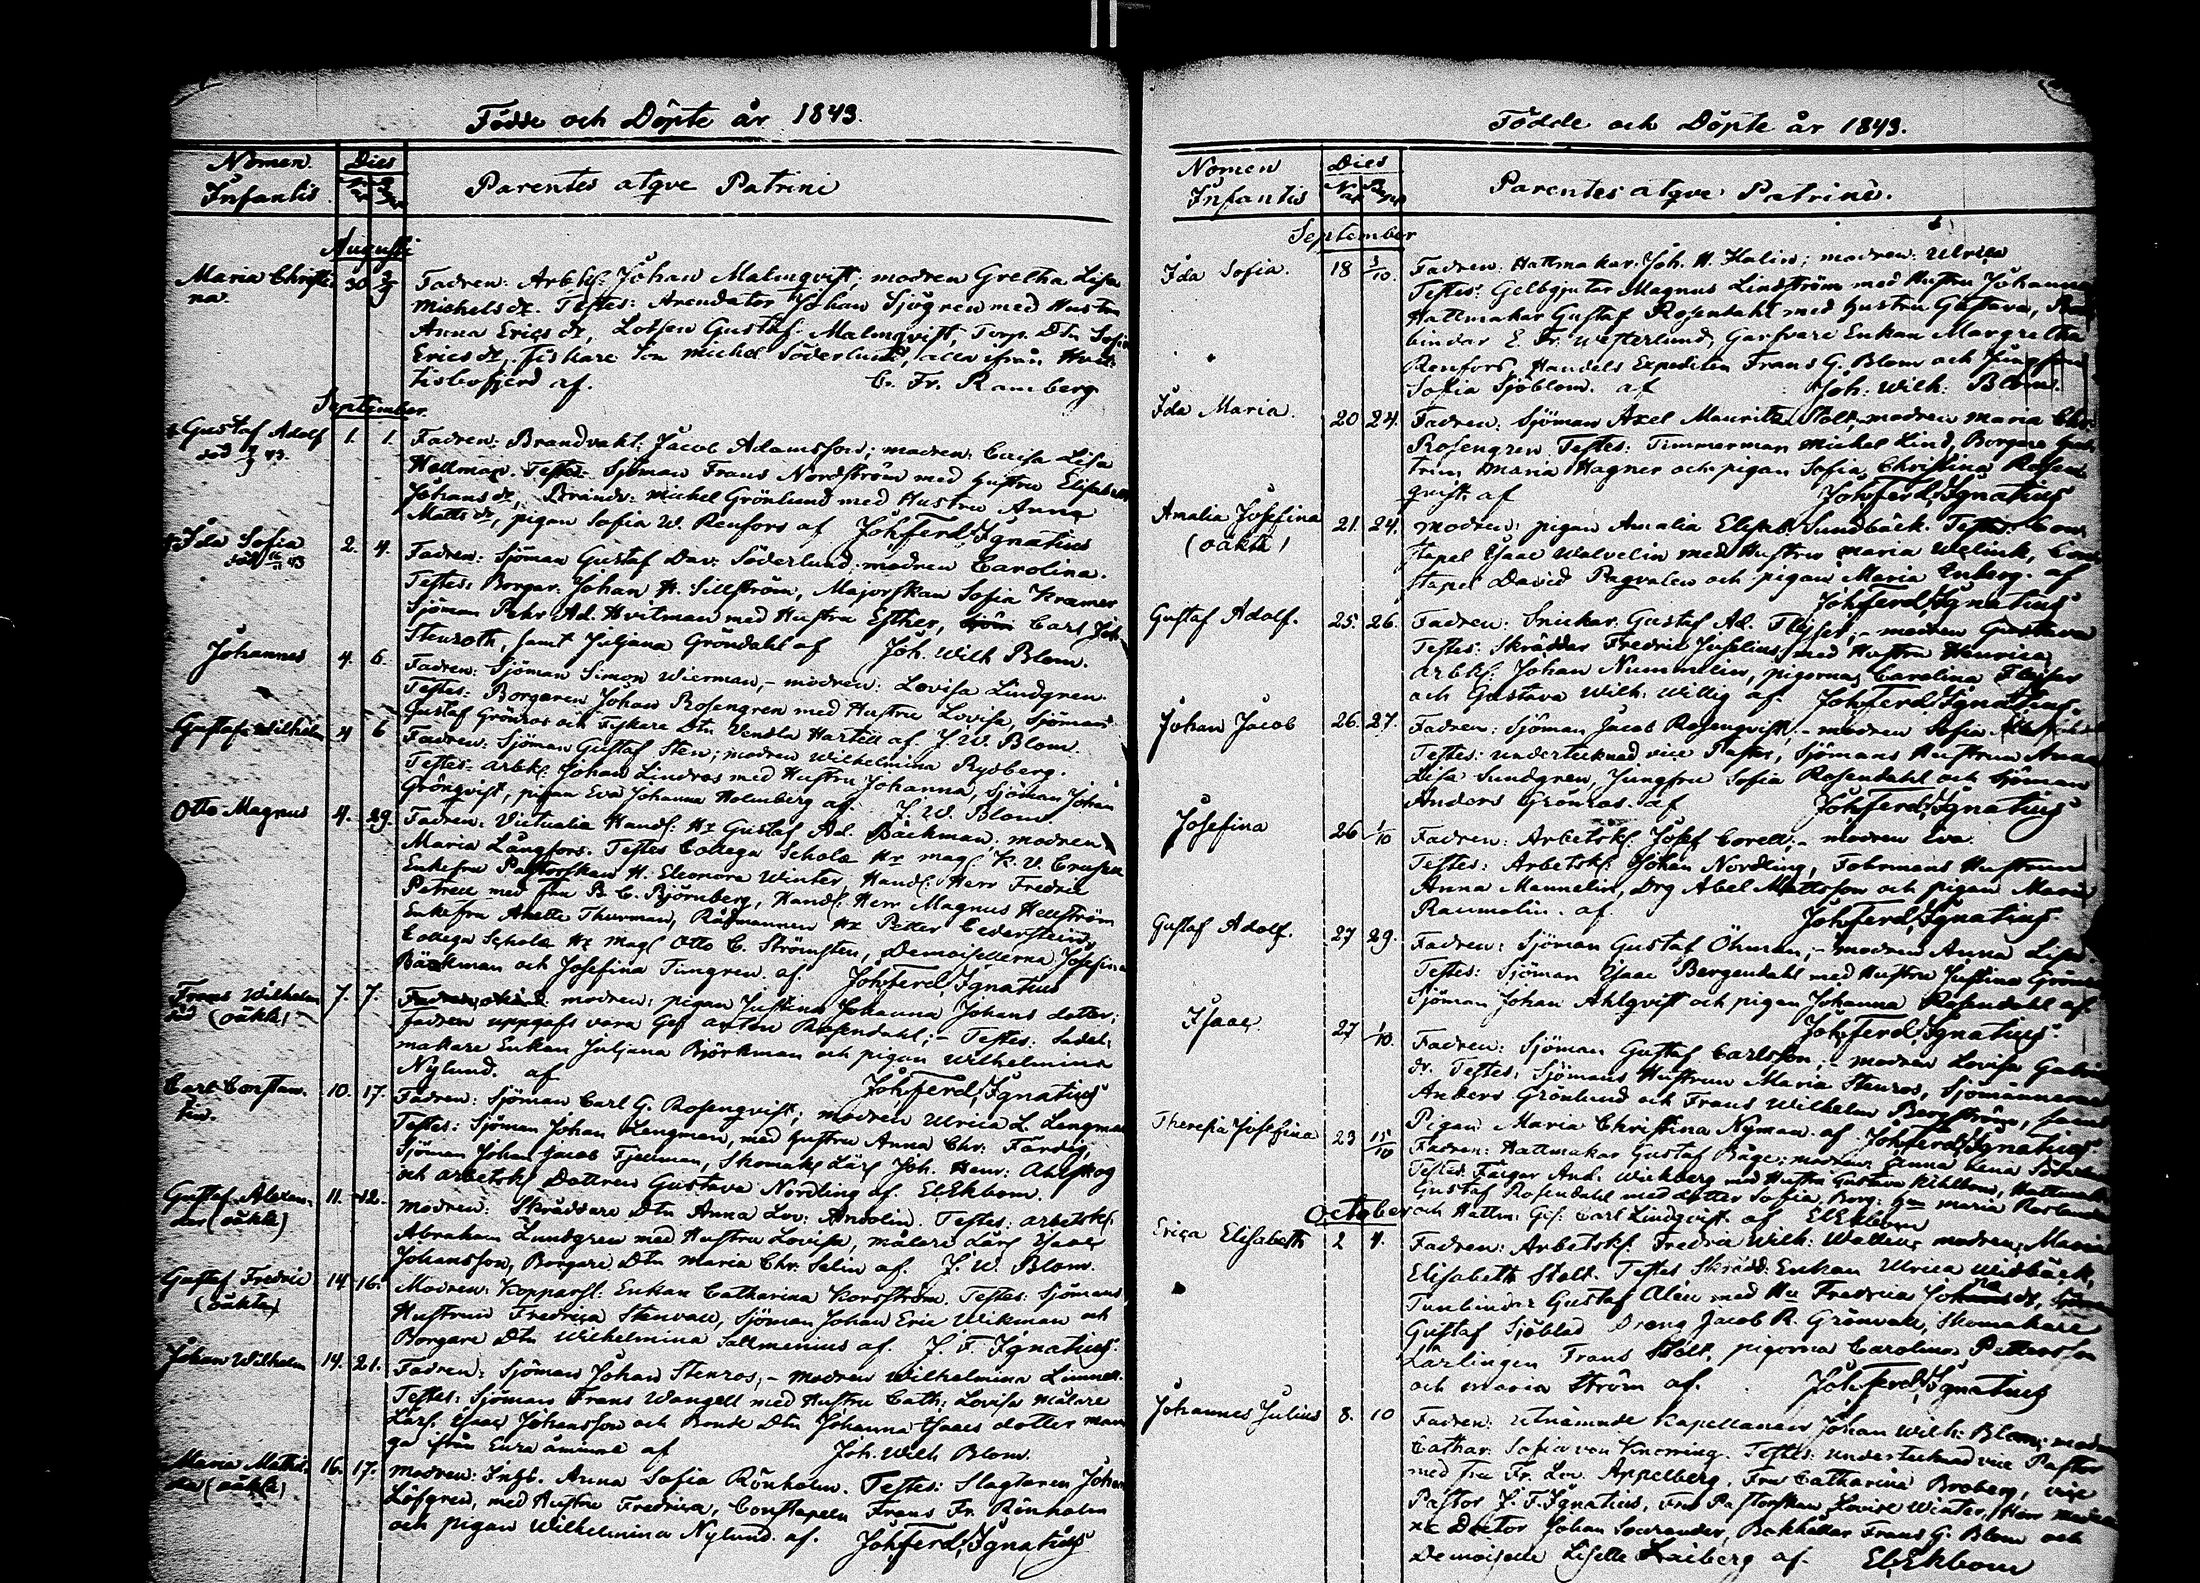 Födde och Döpte år 1843.
Nomen Infantis
Dies
Parentes atqve Patrini
Augusti
Maria Christi
na.
30 3/9
Fadren: Arbk: Johan Malmqvist; modren Gretha Lisa
Michelsdr. Testes: Arendator Johan Sjögren med Hustru
Anna Ericsdr, Lotsen Gustaf Malmqvist, Torp. Dtn Sofia
Ericsdr, fiskare Son Michel Söderlund, alla ifrån
tisbofjerd af. C. Fr. Ramberg
September
Gustaf Adolf
död
1. 1.
Fadren: Brandvakt: Jacob Adamsson; modren Caisa Lisa
Hallman. Testes Sjöman Frans Nordström med Hustru Elisabeth
Johansdr, Brandv: Michel Grönlund med Hustru Anna
Mattsdr, pigan Sofia W. Renfors af Joh. Ferd. Ignatius
Ida Sofia
död
2. 4.
Fadren: Sjöman Gustaf Dav: Söderlund; modren Carolina.
Testes: Borgar: Johan H. Sillström, Majorskan Sofia Kramer
Sjöman Pehr Ad. Hvitman med Hustru Esther, Carl Joh.
Stenroth, samt Juljana Gröndahl af Joh. Wilh Blom.
Johannes
4. 6.
Fadren: Sjöman Simon Wierman, - modren: Lovisa Lindgren.
Testes: Borgaren Johan Rosengren med Hustru Lovisa, Sjöman
Gustaf Grönros och Fiskare Dtn Vendla Hartell af J. W. Blom.
Gustaf Wilhelm
4 6
Fadren: Sjöman Gustaf Sten; modren Wilhelmina Rydberg.
Testes: arbk: Johan Lindros med Hustru Johanna, Sjöman Johan
Grönqvist, pigan Eva Johanna Holmberg af. J. W. Blom.
Otto Magnus
4. 29.
Fadren: Victualie Handl: Hr Gustaf Ad. Bäckman, modren
Maria Långfors. Testes Collega Scholæ Hr mag: K. V. Crusell
Enkefru Pastorskan H. Eleonora Winter, Handl: Herr Fredric
Petrell med fru B. C. Björnberg, Handl: Herr Magnus Hellström
Enkefru Anette Thurman, Rådmannen Hr Petter Cederstein,
Collega Scholæ Hr Mag: Otto C. Strömsten, Demoisellerna Josefina
Bäckman och Josefina Tungren. af. Joh. Ferd. Ignatius
Frans Wilhelm
död (oäkta)
7. 7.
modren: pigan Justina Johanna Johans dotter;
fadren uppgafs vara Ges Anton Rosendahl; - Testes: Sadel-
makare Enkan Juljana Björkman och pigan Wilhelmina
Nylund. af Joh. Ferd. Ignatius
Carl Constan-
tin.
10. 17.
Fadren: Sjöman Carl G. Rosenqvist; modren Ulrica L. Lengman
Testes: Sjöman Johan Lengman, med Hustru Anna Chr. Färdig,
Sjöman Johan Jacob Fjellman, Skomak: Lärl Joh. Henr: Ahlskog
och arbetsk: Dottren Gustava Nordling af. El Ekbom.
Gustaf Alexan-
der (oäkta)
11. 12.
modren: Skräddare Dtn Anna Lov: Andolin. Testes: arbetsk:
Abraham Lundgren med Hustru Lovisa, målare Lärl Isaac
Johansson, Borgare Dtn Maria Chr. Selin af. J. W. Blom.
Gustaf Fredric
(oäkta)
14 16.
Modren: Kopparsl: Enkan Catharina Korsström. Testes: Sjömans
Hustrun Fredrica Stenvall, Sjöman Johan Eric Wikman och
Borgare Dtn Wilhelmina Sallmenius af. J. F. Ignatius.
Johan Wilhelm
14. 21.
Fadren: Sjöman Johan Stenros; - modren Wilhelmina Limnell.
Testes: Sjöman Frans Wangell med Hustru Cath: Lovisa målare
Lärl. Isaac Johansson och Bonde Dtn Johanna Isaacs dotter
ifrån Euraåminne af Joh. Wilh Blom.
Maria Mathil-
da (oäkta)
16. 17.
modren: Inh. Anna Sofia Rönholm. Testes: Slagtaren Johan
Löfgren, med Hustru Fredrica, Constapeln Frans Fr. Rönholm
och pigan Wilhelmina Nylund. af. Joh. Ferd. Ignatius
Födde och Döpte år 1843.
Nomen Infantis
Dies
Parentes atqve Patrini.
September
Ida Sofia.
18 3/10.
Fadren: Hattmakar: Joh. H. Halin; modren: Ulrica
Testes: Gelbgjutar Magnus Lindström med Hustru Johanna
Hattmakar Gustaf Rosendahl med Hustru Gustava,
bindar E. Fr. Westerlund, Garfvare Enkan Margretha
Renfors, Handels Expediten Frans G. Blom och Jungfrun
Sofia Sjöblom. af Joh. Wilh. Blom.
Ida Maria.
20 24.
Fadren: Sjöman Axel Maurits Stolt; modren Maria Chr:
Rosengren Testes: Timmerman Michel Lind, Borgare
Maria Hagner och pigan Sofia Christina Rosen-
quist af Joh. Ferd. Ignatius
Amalia Josefina
(oäkta)
21. 24.
modren: pigan Amalia Elisab. Sundbäck. Testes: Con-
stapel Isaac Walvelin med Hustru Maria Welink, Con-
stapel David Pagvalen och pigan Maria Enberg. af
Joh. Ferd. Ignatius
Gustaf Adolf.
25. 26.
Fadren: Snickar: Gustaf Ad. Flisser, - modren Gustava
Testes: Skräddar Fredric Juselius med Hustru Henrica,
arbk: Johan Nummelin, pigorna Carolina Flisser
och Gustava Wilh. Willig af. Joh. Ferd. Ignatius.
Johan Jacob
26. 27.
Fadren: Sjöman Jacob Rosenqvist, - modren Sofia
Testes: undertecknad vice Pastor, Sjömans Hustrun Anna
Lisa Sundgren, Jungfru Sofia Rosendahl och Sjöman
Anders Grönros. af Joh. Ferd. Ignatius
Josefina
26 1/10
Fadren: Arbetsk: Josef Corell; - modren Eva.
Testes: Arbetsk: Johan Nordling, Fohrmans Hustrun
Anna Mannelin, Drg Abel Mattsson och pigan Maria
Raumolin. af. Joh. Ferd. Ignatius
Gustaf Adolf.
27 29.
Fadren: Sjöman Gustaf Öhman; - modren Anna Lisa.
Testes: Sjöman Isaac Bergendahl med Hustru Justina
Sjöman Johan Ahlqvist och pigan Johanna Rosendahl af.
Joh. Ferd. Ignatius.
Isaac.
27 1/10.
Fadren: Sjöman Gustaf Carlsson; - modren Lovisa
dr. Testes: Sjömans Hustrun Maria Stenros, Sjömännerna
Anders Grönlund och Frans Wilhelm Bergström, samt
Pigan Maria Christina Nyman. af Joh. Ferd. Ignatius
Theresia Josefina
23 15/10
Fadren: Hattmakar Gustaf Båge; modren Anna Lena
Testes: Färgar And. Wickberg med Hustru Gustava Kihlbom, Hattmak
Gustaf Rosendahl med dotter Sofia, Borg: Maria
och Hattm: Ges: Carl Lindqvist. af El Ekbom
October
Erica Elisabeth
2 4.
Fadren: Arbetsk: Fredric Wilh: Wallen; modren: Maria
Elisabeth Stolt. Testes Skrädd: Enkan Ulrica Widbäck,
Tunbindar Gustaf Alin med Hu Fredrica
Gustaf Sjöblad Dreng Jacob R. Grönvall, Skomakare
Lärlingen Frans Stolt, pigorna Carolina Pettersson
och Maria Ström af. Joh. Ferd. Ignatius
Johannes Julius
8. 10
Fadren: Utnämnde Kapellanen Johan Wilh: Blom; modren
Cathar: Sofia von Knorring. Testes: undertecknad vice Pastor
med fru Fr. Lov. Appelberg, Fru Catharina Broberg, vice
Pastor J. F. Ignatius, Fru Pastorskan Lovise Winter, Herr
Doctor Johan, Bokhållar Frans G. Blom och
Demoiselle Lisette af. El Ekbom